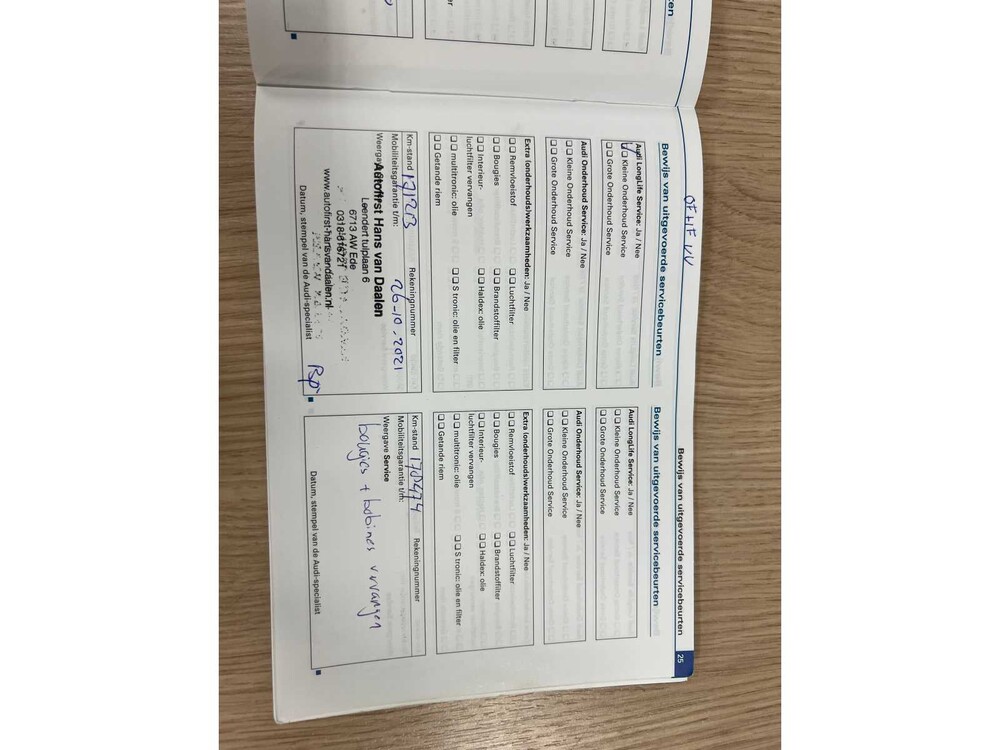 Bewijs van uitgevoerde servicebeurten
25
Bewijs van uitgevoerde servicebeurten
Audi LongLife Service: Ja / Nee
Kleine Onderhoud Service
Grote Onderhoud Service
Audi Onderhoud Service: Ja / Nee
Kleine Onderhoud Service
Grote Onderhoud Service
Extra (onderhouds)werkzaamheden: Ja / Nee
Remvloeistof
Luchtfilter
Bougies
Brandstoffilter
Interieur-
luchtfilter vervangen
Haldex: olie
multitronic: olie
S tronic: olie en filter
Getande riem
Km-stand
Rekeningnummer
Mobiliteitsgarantie t/m:
26-10-2021
Weergave
Autofirst Hans van Daalen
Leendert tulplaan 6
6713 AW Ede
0318-616721
www.autofirst-hansvandaalen.nl
Datum, stempel van de Audi-specialist
Bewijs van uitgevoerde servicebeurten
Audi LongLife Service: Ja / Nee
Kleine Onderhoud Service
Grote Onderhoud Service
Audi Onderhoud Service: Ja / Nee
Kleine Onderhoud Service
Grote Onderhoud Service
Extra (onderhouds)werkzaamheden: Ja / Nee
Remvloeistof
Luchtfilter
Bougies
Brandstoffilter
Interieur-
luchtfilter vervangen
Haldex: olie
multitronic: olie
S tronic: olie en filter
Getande riem
Km-stand 178474
Rekeningnummer
Mobiliteitsgarantie t/m:
Weergave Service
bougies + bobines vervangen
Datum, stempel van de Audi-specialist